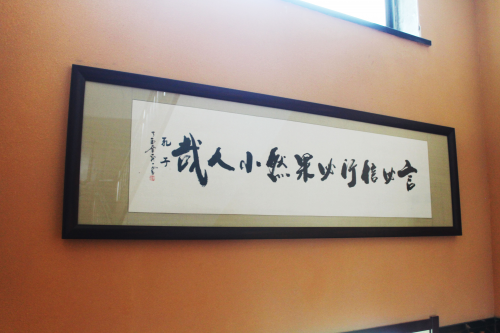 言必信行必果然小人哉
孔子